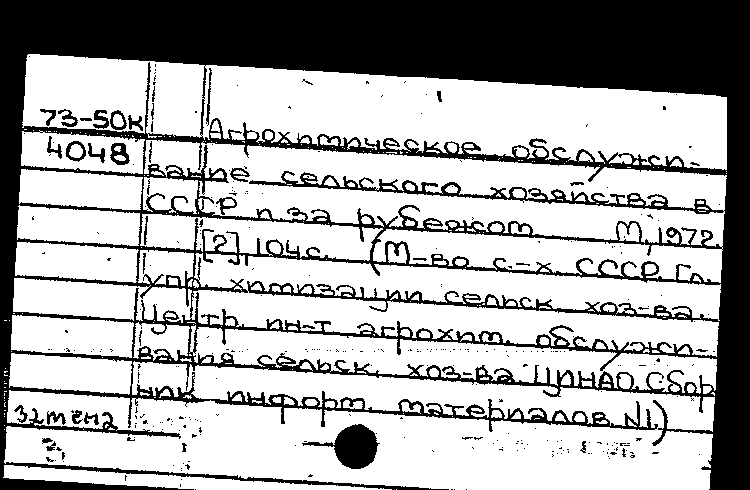 73-50к Агрохимическое обслужи-
4048 вание сельского хозяйства в
СССР и за рубежом. М., 1972.
[2], 104с. (М-во с.-х. СССР. Гл.
упр. химизации сельск. хоз-ва.
Центр. ин-т агрохим. обслужи-
вания сельск. хоз-ва ЦИНАО. Сбор
ник информ. материалов. N1.)